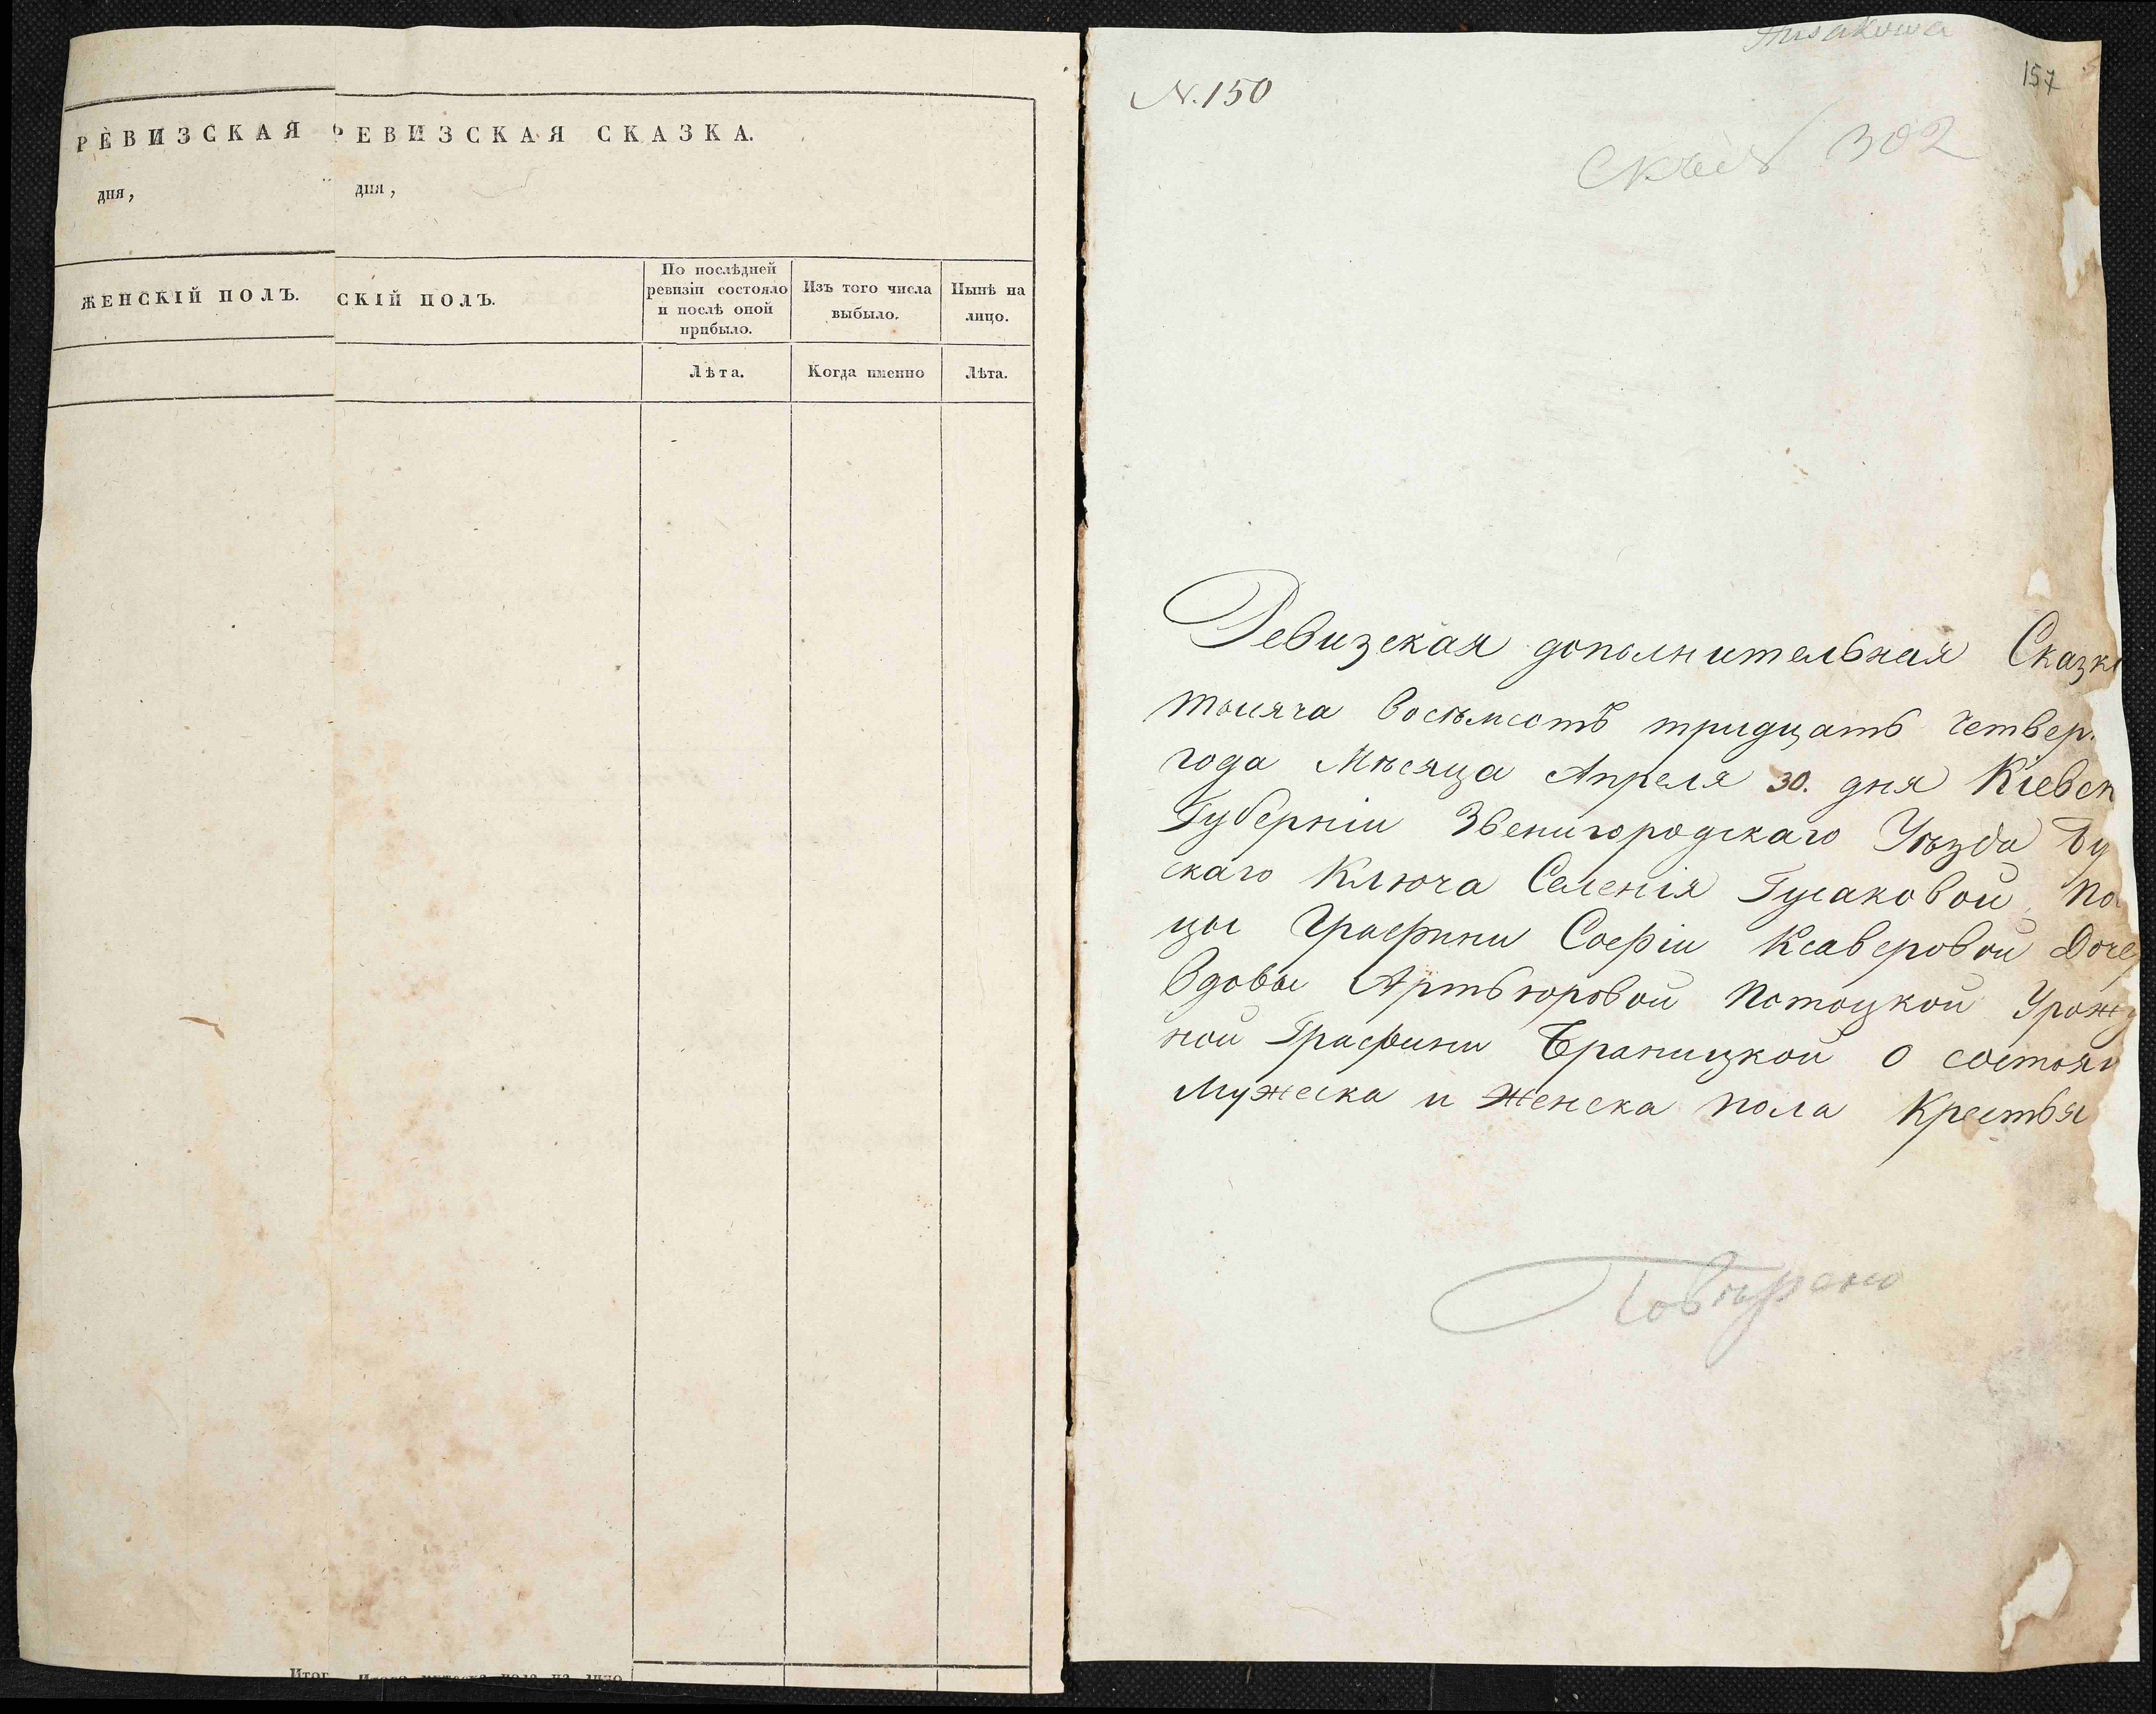 РЕВИЗСКАЯ
РЕВИЗСКАЯ СКАЗКА.
дня,
дня,
ЖЕНСКІЙ ПОЛЪ.
СКІЙ ПОЛЪ.
По послѣдней
ревизіи состояло
и послѣ оной
прибыло.
Изъ того числа
выбыло.
Нынѣ на
лицо.
Лѣта.
Когда именно
Лѣта.
Итог
Итого мужеска пола на лицо
Husakowa
157
N. 150
302
Ревизская дополнительная Сказк
тысяча восѣмсотъ тридцать четвер
года Мѣсяца Апреля 30. дня Кіевск
Губерніи Звенигородскаго Уѣзда
скаго Ключа Селенія Гусаковой По
цы Графини Софіи Ксаверовой Доче
Вдовы Артьюровой Потоцкой Урожд
ной Графини Браницкой о состоян
Мужеска и Женска пола Крестья
Повѣрено